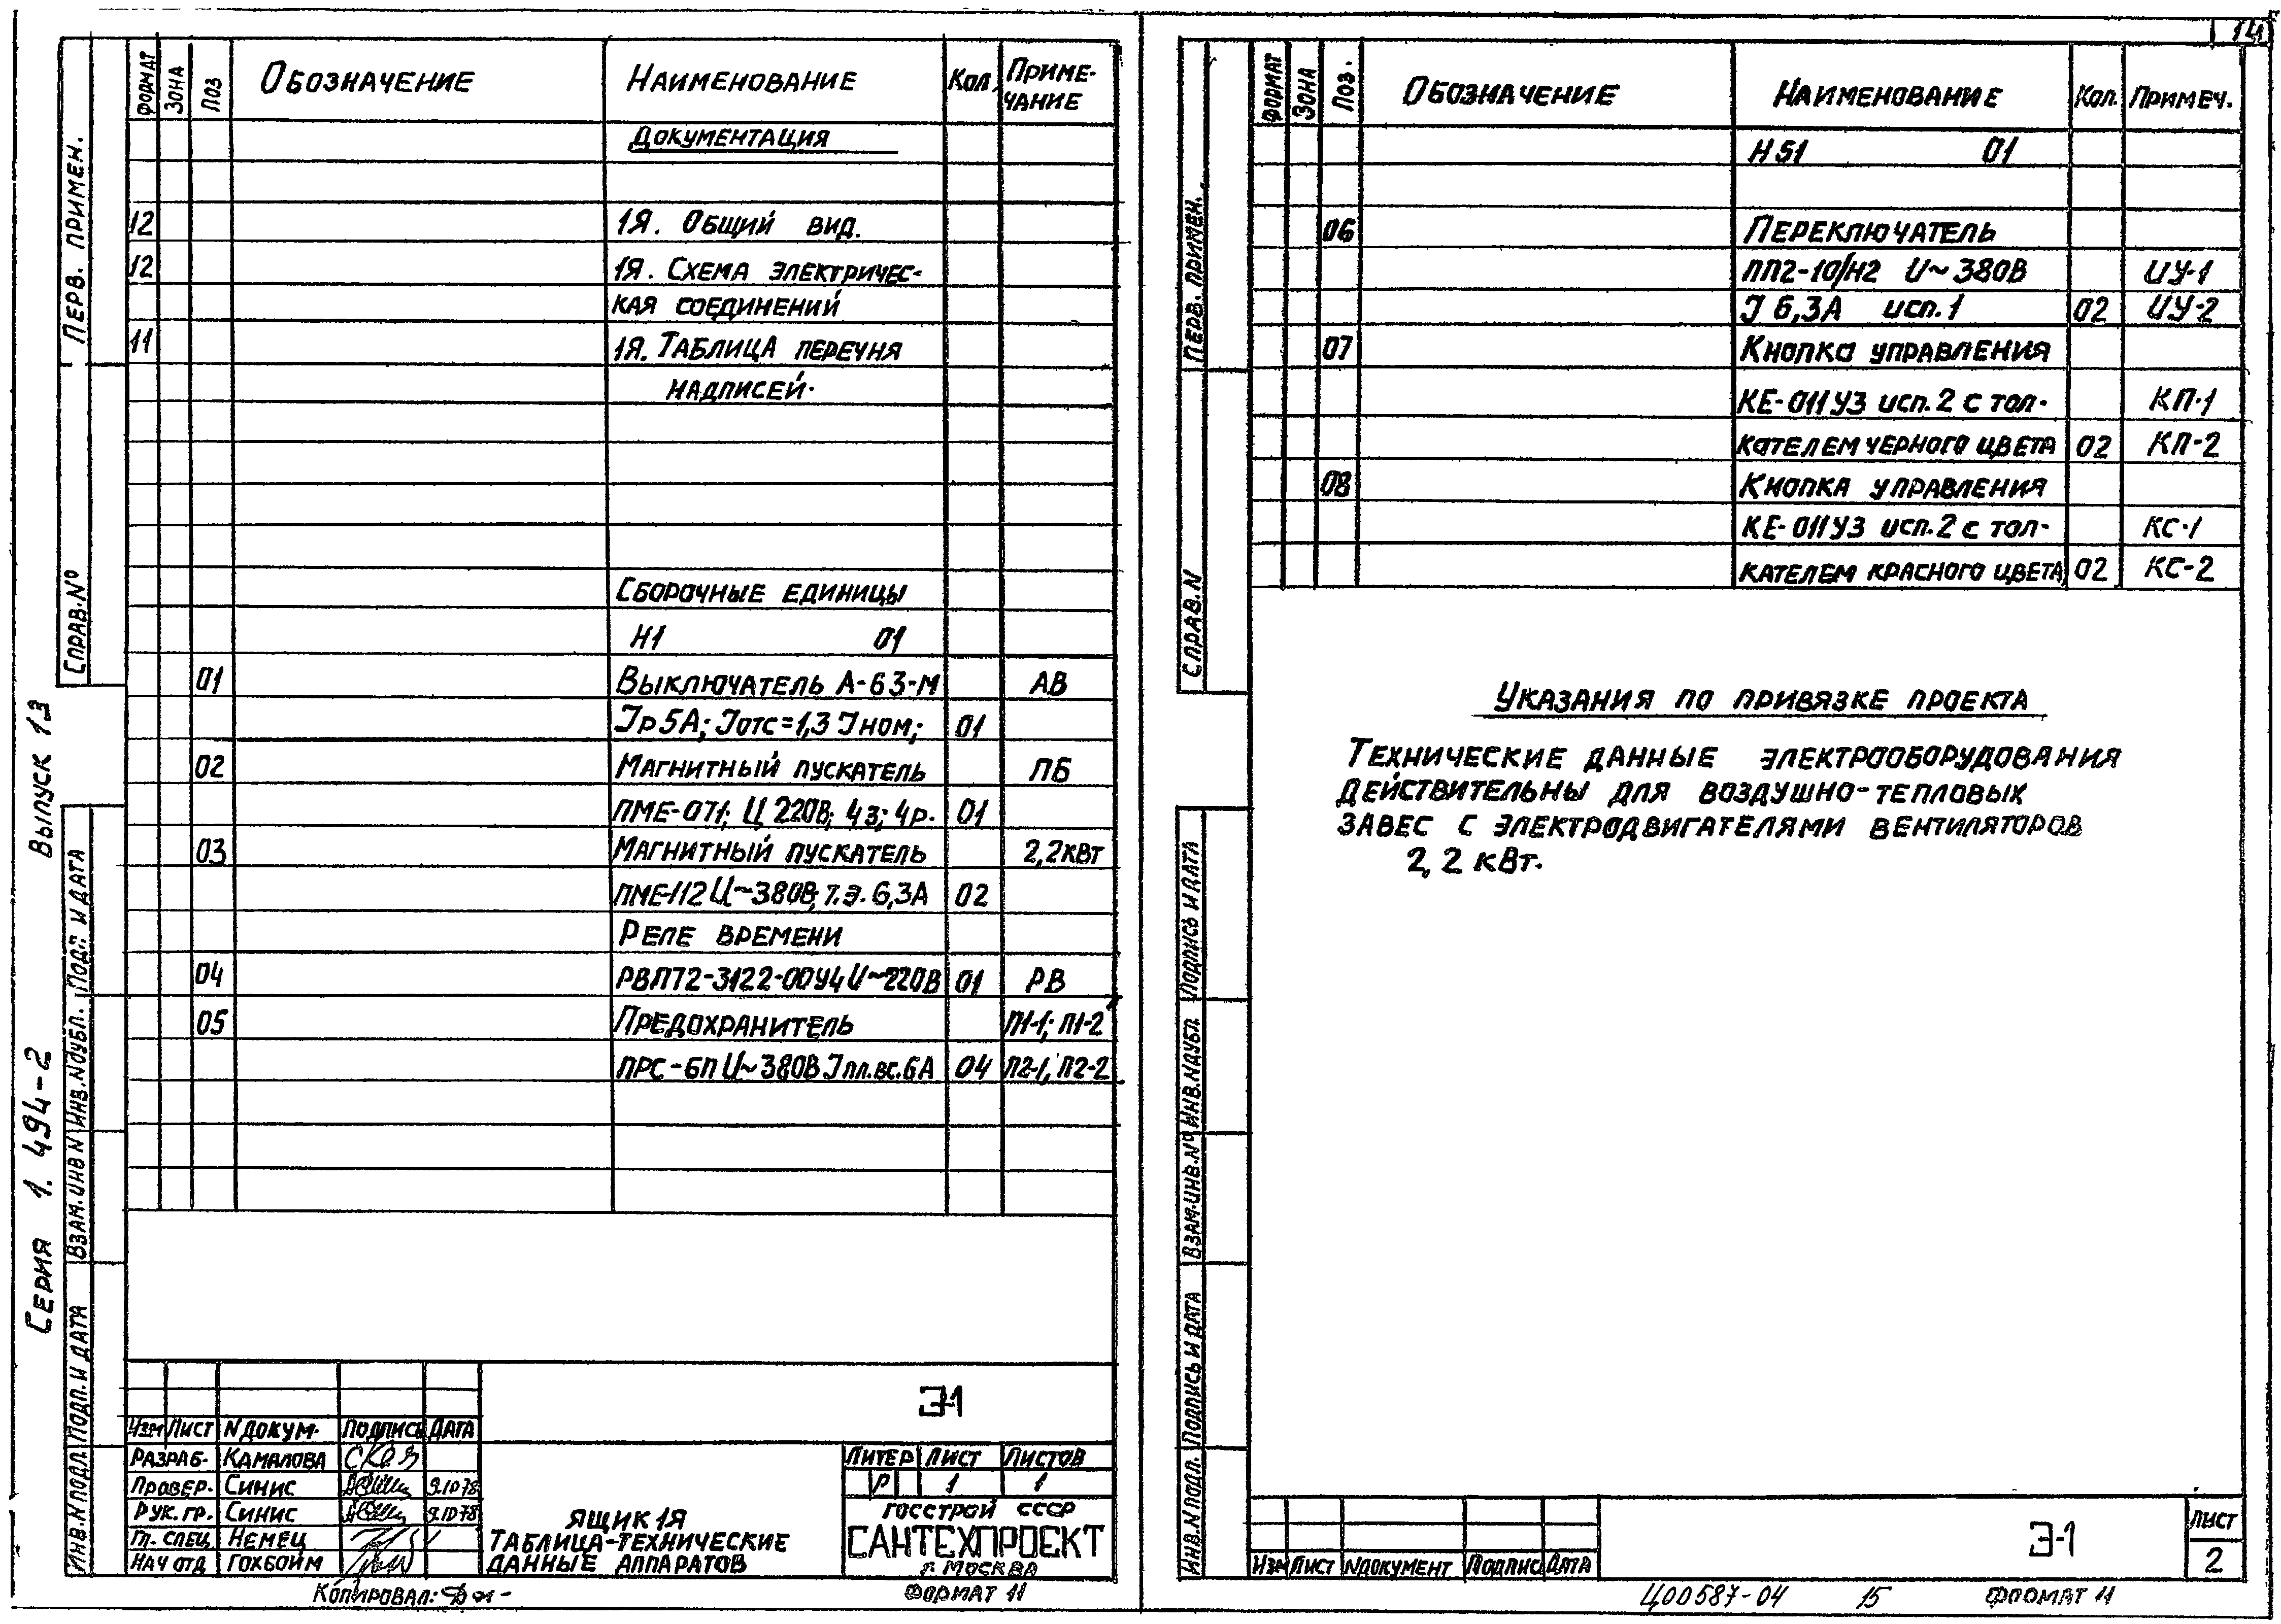 14
Серия 1.494-2 Выпуск 13
Перв. примен.
Справ. №
Подп. и дата
Инв. N дубл.
Взам. инв N
Подп. и дата
Инв. N подл.
Формат Зона Поз Обозначение Наименование Кол. Приме-
чание
Документация
12 1Я. Общий вид.
12 1Я. Схема электричес-
кая соединений
11 1Я. Таблица перечня
надписей.
Сборочные единицы
Н1 01
01 Выключатель А-63-М АВ
Jр 5А; Jотс=1,3 Jном; 01
02 Магнитный пускатель ПБ
ПМЕ-071; U 220В; 4з; 4р. 01
03 Магнитный пускатель 2,2кВт
ПМЕ-112 U~380В; т.э. 6,3А 02
Реле времени
04 РВП72-3122-00У4 U~220В 01 РВ
05 Предохранитель П1-1; П1-2
ПРС-6П U~380В Jпл.вс.6А 04 П2-1, П2-2
Э-1
Изм Лист N докум. Подпись Дата
Разраб. Камалова
Провер. Синис 9.10 78
Рук. гр. Синис 9.10 78
Гл. спец Немец
Нач отд Гохбойм
Ящик 1Я
Таблица-технические
данные аппаратов
Литер Лист Листов
Р 1 1
Госстрой СССР
САНТЕХПРОЕКТ
г. Москва
Копировал:
Формат 11
Перв. примен.
Справ. N
Подпись и дата
Инв. N дубл.
Взам. инв. №
Подпись и дата
Инв. N подл.
Формат Зона Поз. Обозначение Наименование Кол. Примеч.
Н51 01
06 Переключатель
ПП2-10/Н2 U~380В ИУ-1
J 6,3А исп.1 02 ИУ-2
07 Кнопка управления
КЕ-011У3 исп.2 с тол- КП-1
кателем черного цвета 02 КП-2
08 Кнопка управления
КЕ-011У3 исп.2 с тол- КС-1
кателем красного цвета 02 КС-2
Указания по привязке проекта
Технические данные электрооборудования
действительны для воздушно-тепловых
завес с электродвигателями вентиляторов
2,2 кВт.
Изм Лист N документ Подпись Дата
Э-1
Лист
2
Ц00587-04 15 Формат 11